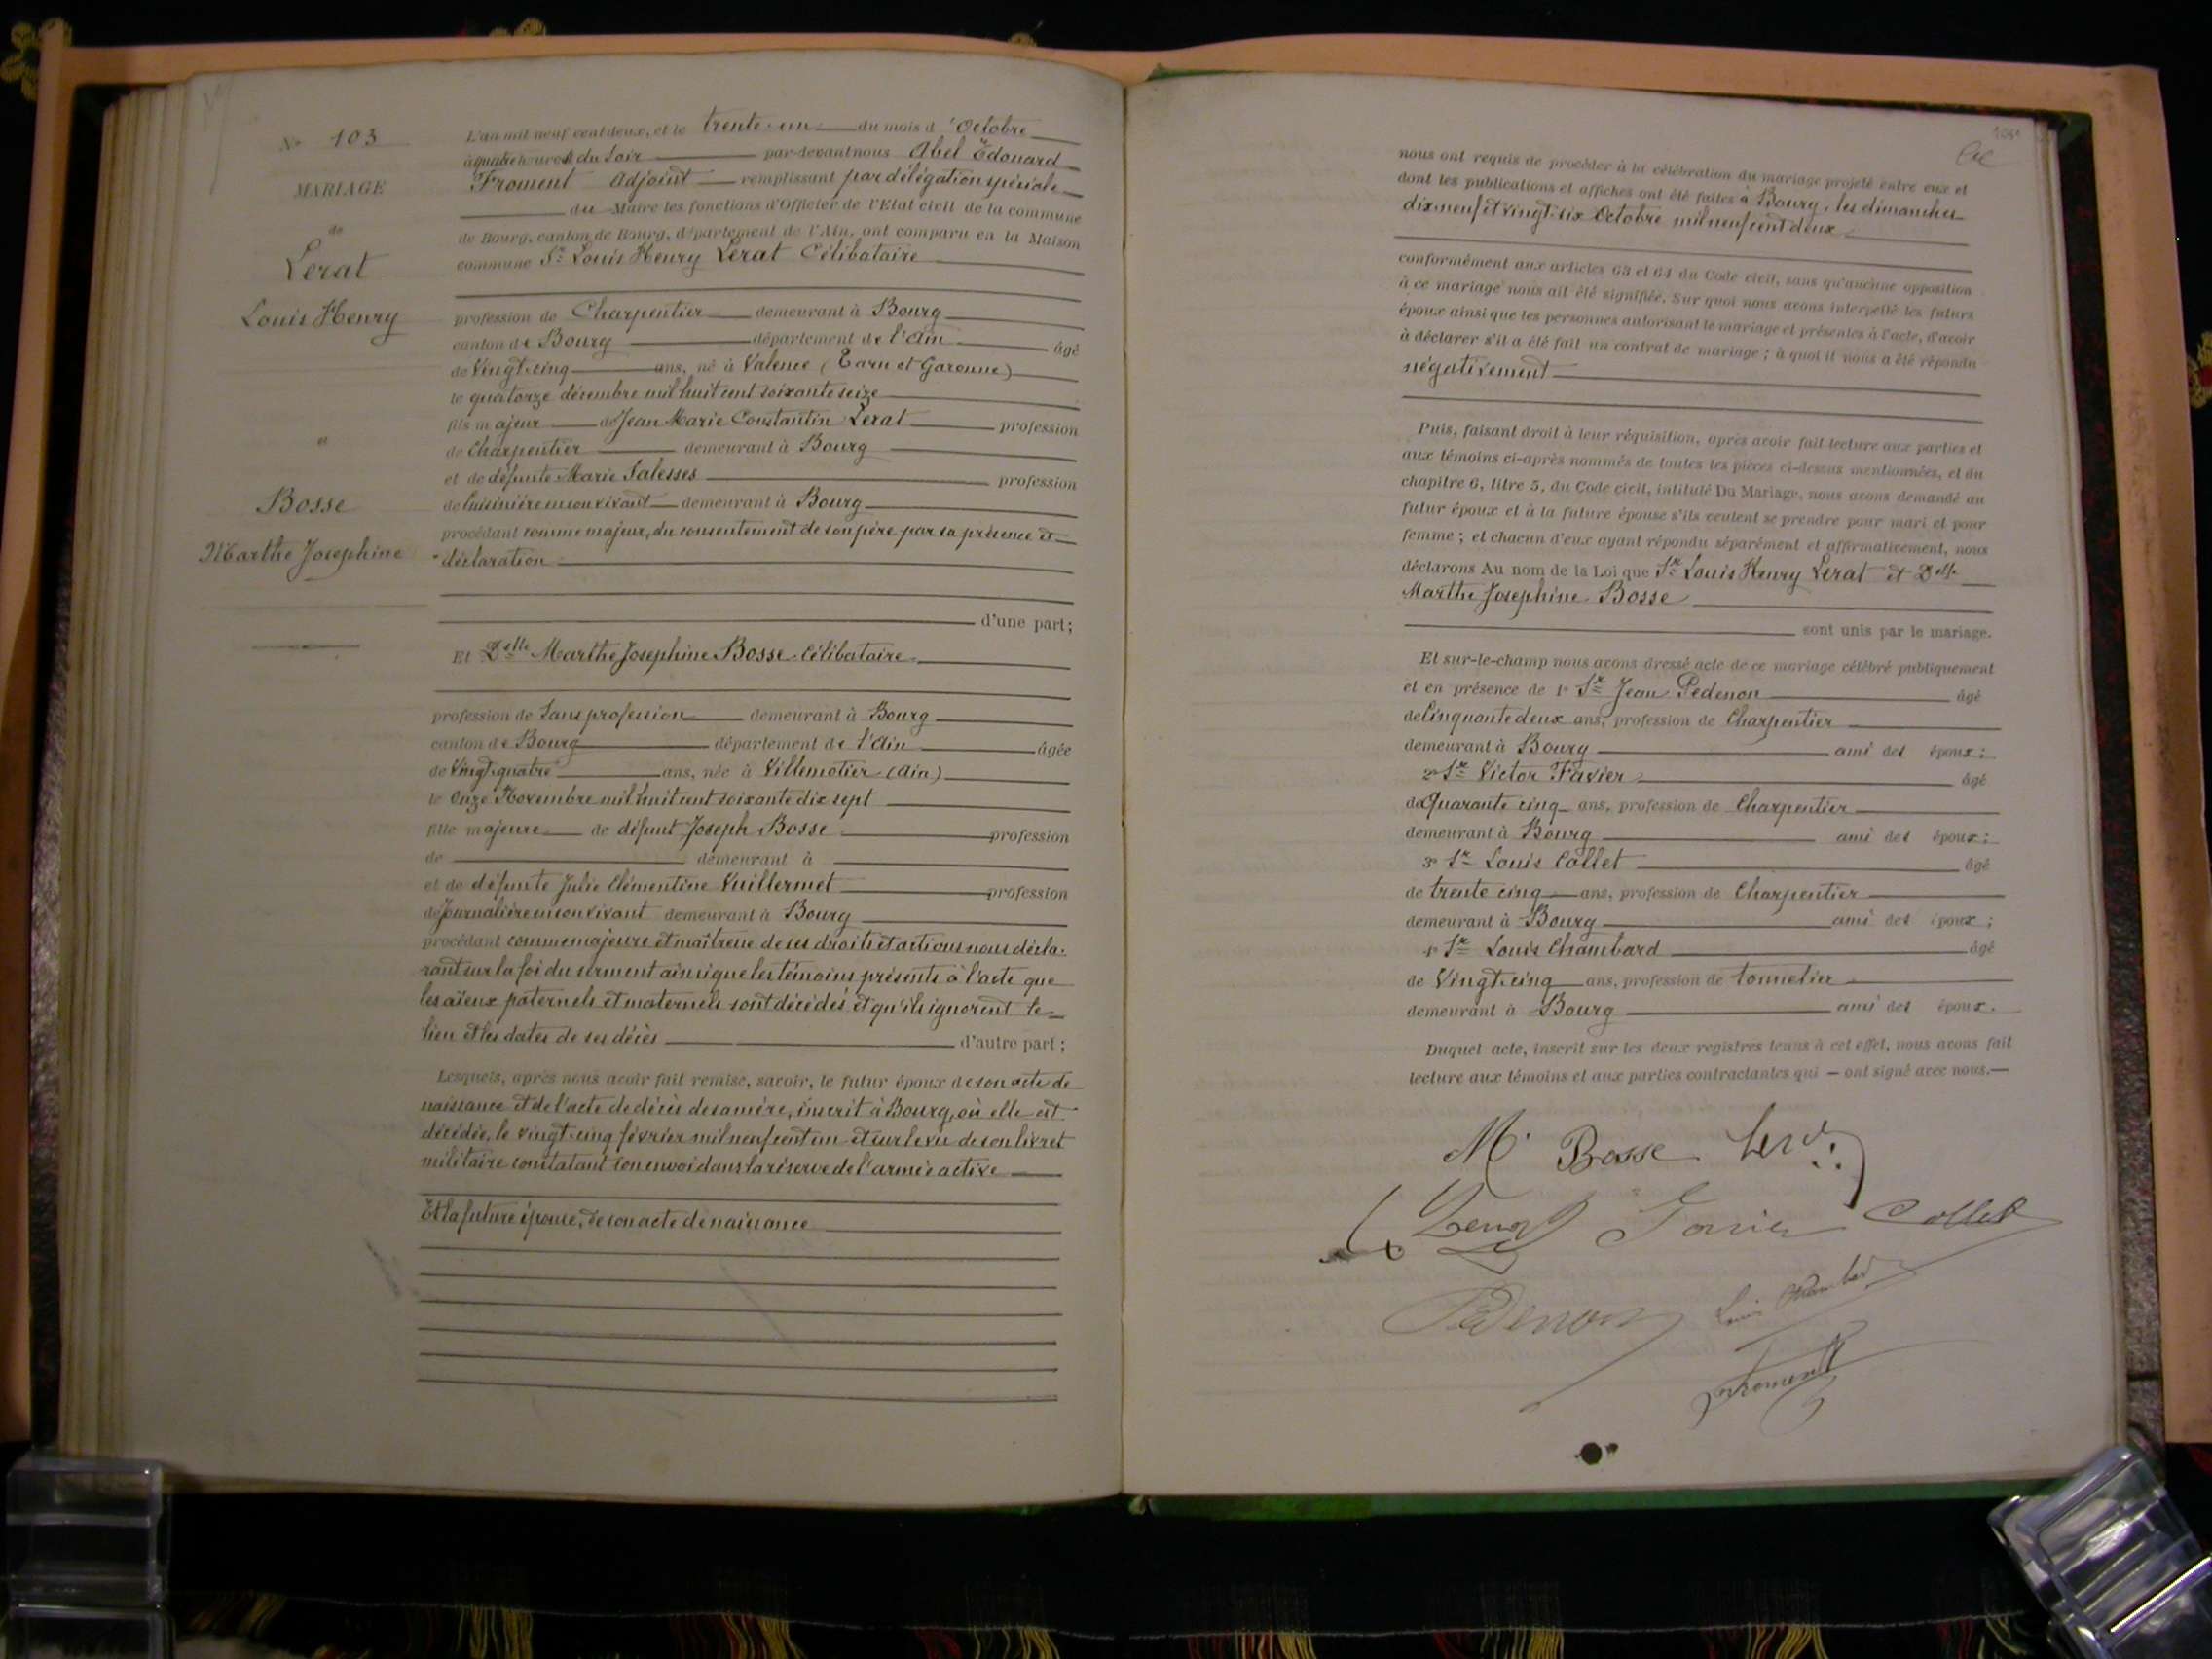 No 103
MARIAGE
de
Lerat
Louis Henry
a
Bosse
Marthe Josephine
L'an mil neuf cent deux, et le trente-un du mois d'Octobre
à quatre heures du Soir par-devant nous Abel Edouard
Froment Adjoint remplissant par délégation spéciale
du Maire les fonctions d'Officier de l'Etat civil de la commune
de Bourg, canton de Bourg, département de l'Ain, ont comparu en la Maison
commune Sr Louis Henry Lerat Célibataire
profession de Charpentier demeurant à Bourg
canton de Bourg département de l'Ain âgé
de Vingt-cinq ans, né à Valence (Tarn et Garonne)
le quatorze décembre mil huit cent soixante seize
fils majeur de Jean Marie Constantin Lerat profession
de Charpentier demeurant à Bourg
et de défunte Marie Salesses profession
de Cuisinière en son vivant demeurant à Bourg
procédant comme majeur, du consentement de son père par sa présence et
déclaration
d'une part;
Et Delle Marthe Josephine Bosse - Célibataire
profession de Sans profession demeurant à Bourg
canton de Bourg département de l'Ain âgée
de Vingt-quatre ans, née à Villemotier (Ain)
le Onze Novembre mil huit cent soixante dix sept
fille majeure de défunt Joseph Bosse profession
de demeurant à
et de défunte Julie Clémentine Vuillermet profession
de Journalière en son vivant demeurant à Bourg
procédant comme majeure et maîtresse de ses droits et actions nous décla-
rant sur la foi du serment ainsi que les témoins présents à l'acte que
les aïeux paternels et maternels sont décédés et qu'ils ignorent le
lieu et les dates de ses décès d'autre part;
Lesquels, après nous avoir fait remise, savoir, le futur époux de son acte de
naissance et de l'acte de décès de sa mère, inscrit à Bourg, où elle est
décédée, le vingt-cinq février mil neuf cent un et sur le vu de son livret
militaire constatant son envoi dans la réserve de l'armée active
Et la future épouse, de son acte de naissance
nous ont requis de procéder à la célébration du mariage projeté entre eux et
dont les publications et affiches ont été faites à Bourg, les dimanches
dix-neuf et vingt-six Octobre mil neuf cent deux
conformément aux articles 63 et 64 du Code civil, sans qu'aucune opposition
à ce mariage nous ait été signifiée. Sur quoi nous avons interpellé les futurs
époux ainsi que les personnes autorisant le mariage et présentes à l'acte, d'avoir
à déclarer s'il a été fait un contrat de mariage; à quoi il nous a été répondu
négativement
Puis, faisant droit à leur réquisition, après avoir fait lecture aux parties et
aux témoins ci-après nommés de toutes les pièces ci-dessus mentionnées, et du
chapitre 6, titre 5, du Code civil, intitulé Du Mariage, nous avons demandé au
futur époux et à la future épouse s'ils veulent se prendre pour mari et pour
femme; et chacun d'eux ayant répondu séparément et affirmativement, nous
déclarons Au nom de la Loi que Sr Louis Henry Lerat et Delle
Marthe Josephine Bosse
sont unis par le mariage.
Et sur-le-champ nous avons dressé acte de ce mariage célébré publiquement
et en présence de 1° Sr Jean Pedenon âgé
de Cinquante deux ans, profession de Charpentier
demeurant à Bourg ami des époux;
2° Sr Victor Favier âgé
de Quarante cinq ans, profession de Charpentier
demeurant à Bourg ami des époux;
3° Sr Louis Collet âgé
de trente cinq ans, profession de Charpentier
demeurant à Bourg ami des époux;
4° Sr Louis Chambard âgé
de Vingt-cinq ans, profession de tonnelier
demeurant à Bourg ami des époux.
Duquel acte, inscrit sur les deux registres tenus à cet effet, nous avons fait
lecture aux témoins et aux parties contractantes qui - ont signé avec nous.
M. Bosse
Favier Collet
Pedenon Louis Chambard
Froment